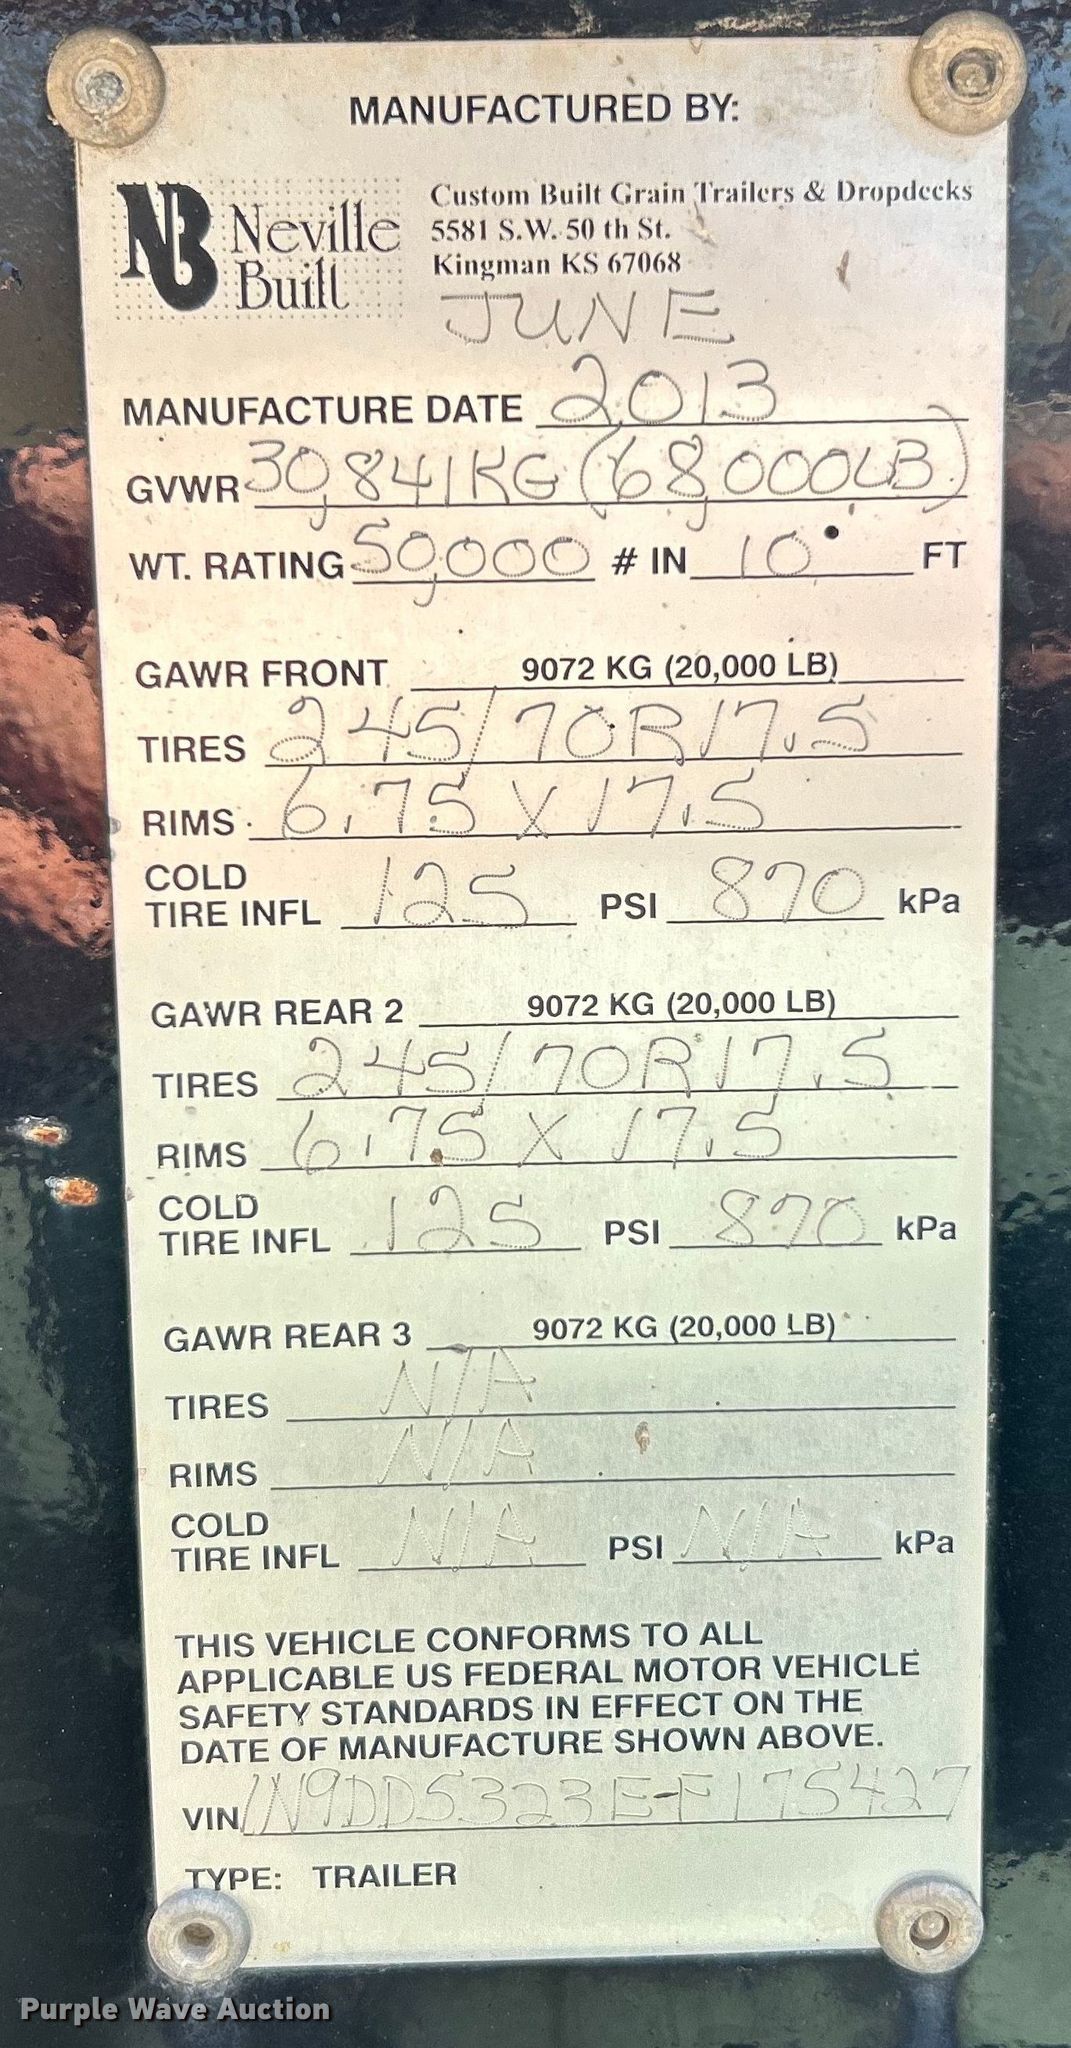 MANUFACTURED BY:
NB Neville Built
Custom Built Grain Trailers & Dropdecks
5581 S.W. 50 th St.
Kingman KS 67068
JUNE
MANUFACTURE DATE 2013
GVWR 30,841KG (68,000LB)
WT. RATING 50,000 # IN 10 FT
GAWR FRONT 9072 KG (20,000 LB)
TIRES 245/70R17.5
RIMS 6.75 X 17.5
COLD
TIRE INFL 125 PSI 870 kPa
GAWR REAR 2 9072 KG (20,000 LB)
TIRES 245/70R17.5
RIMS 6.75 X 17.5
COLD
TIRE INFL 125 PSI 870 kPa
GAWR REAR 3 9072 KG (20,000 LB)
TIRES N/A
RIMS N/A
COLD
TIRE INFL N/A PSI N/A kPa
THIS VEHICLE CONFORMS TO ALL
APPLICABLE US FEDERAL MOTOR VEHICLE
SAFETY STANDARDS IN EFFECT ON THE
DATE OF MANUFACTURE SHOWN ABOVE.
VIN 1N9DD5323E-F175427
TYPE: TRAILER
Purple Wave Auction